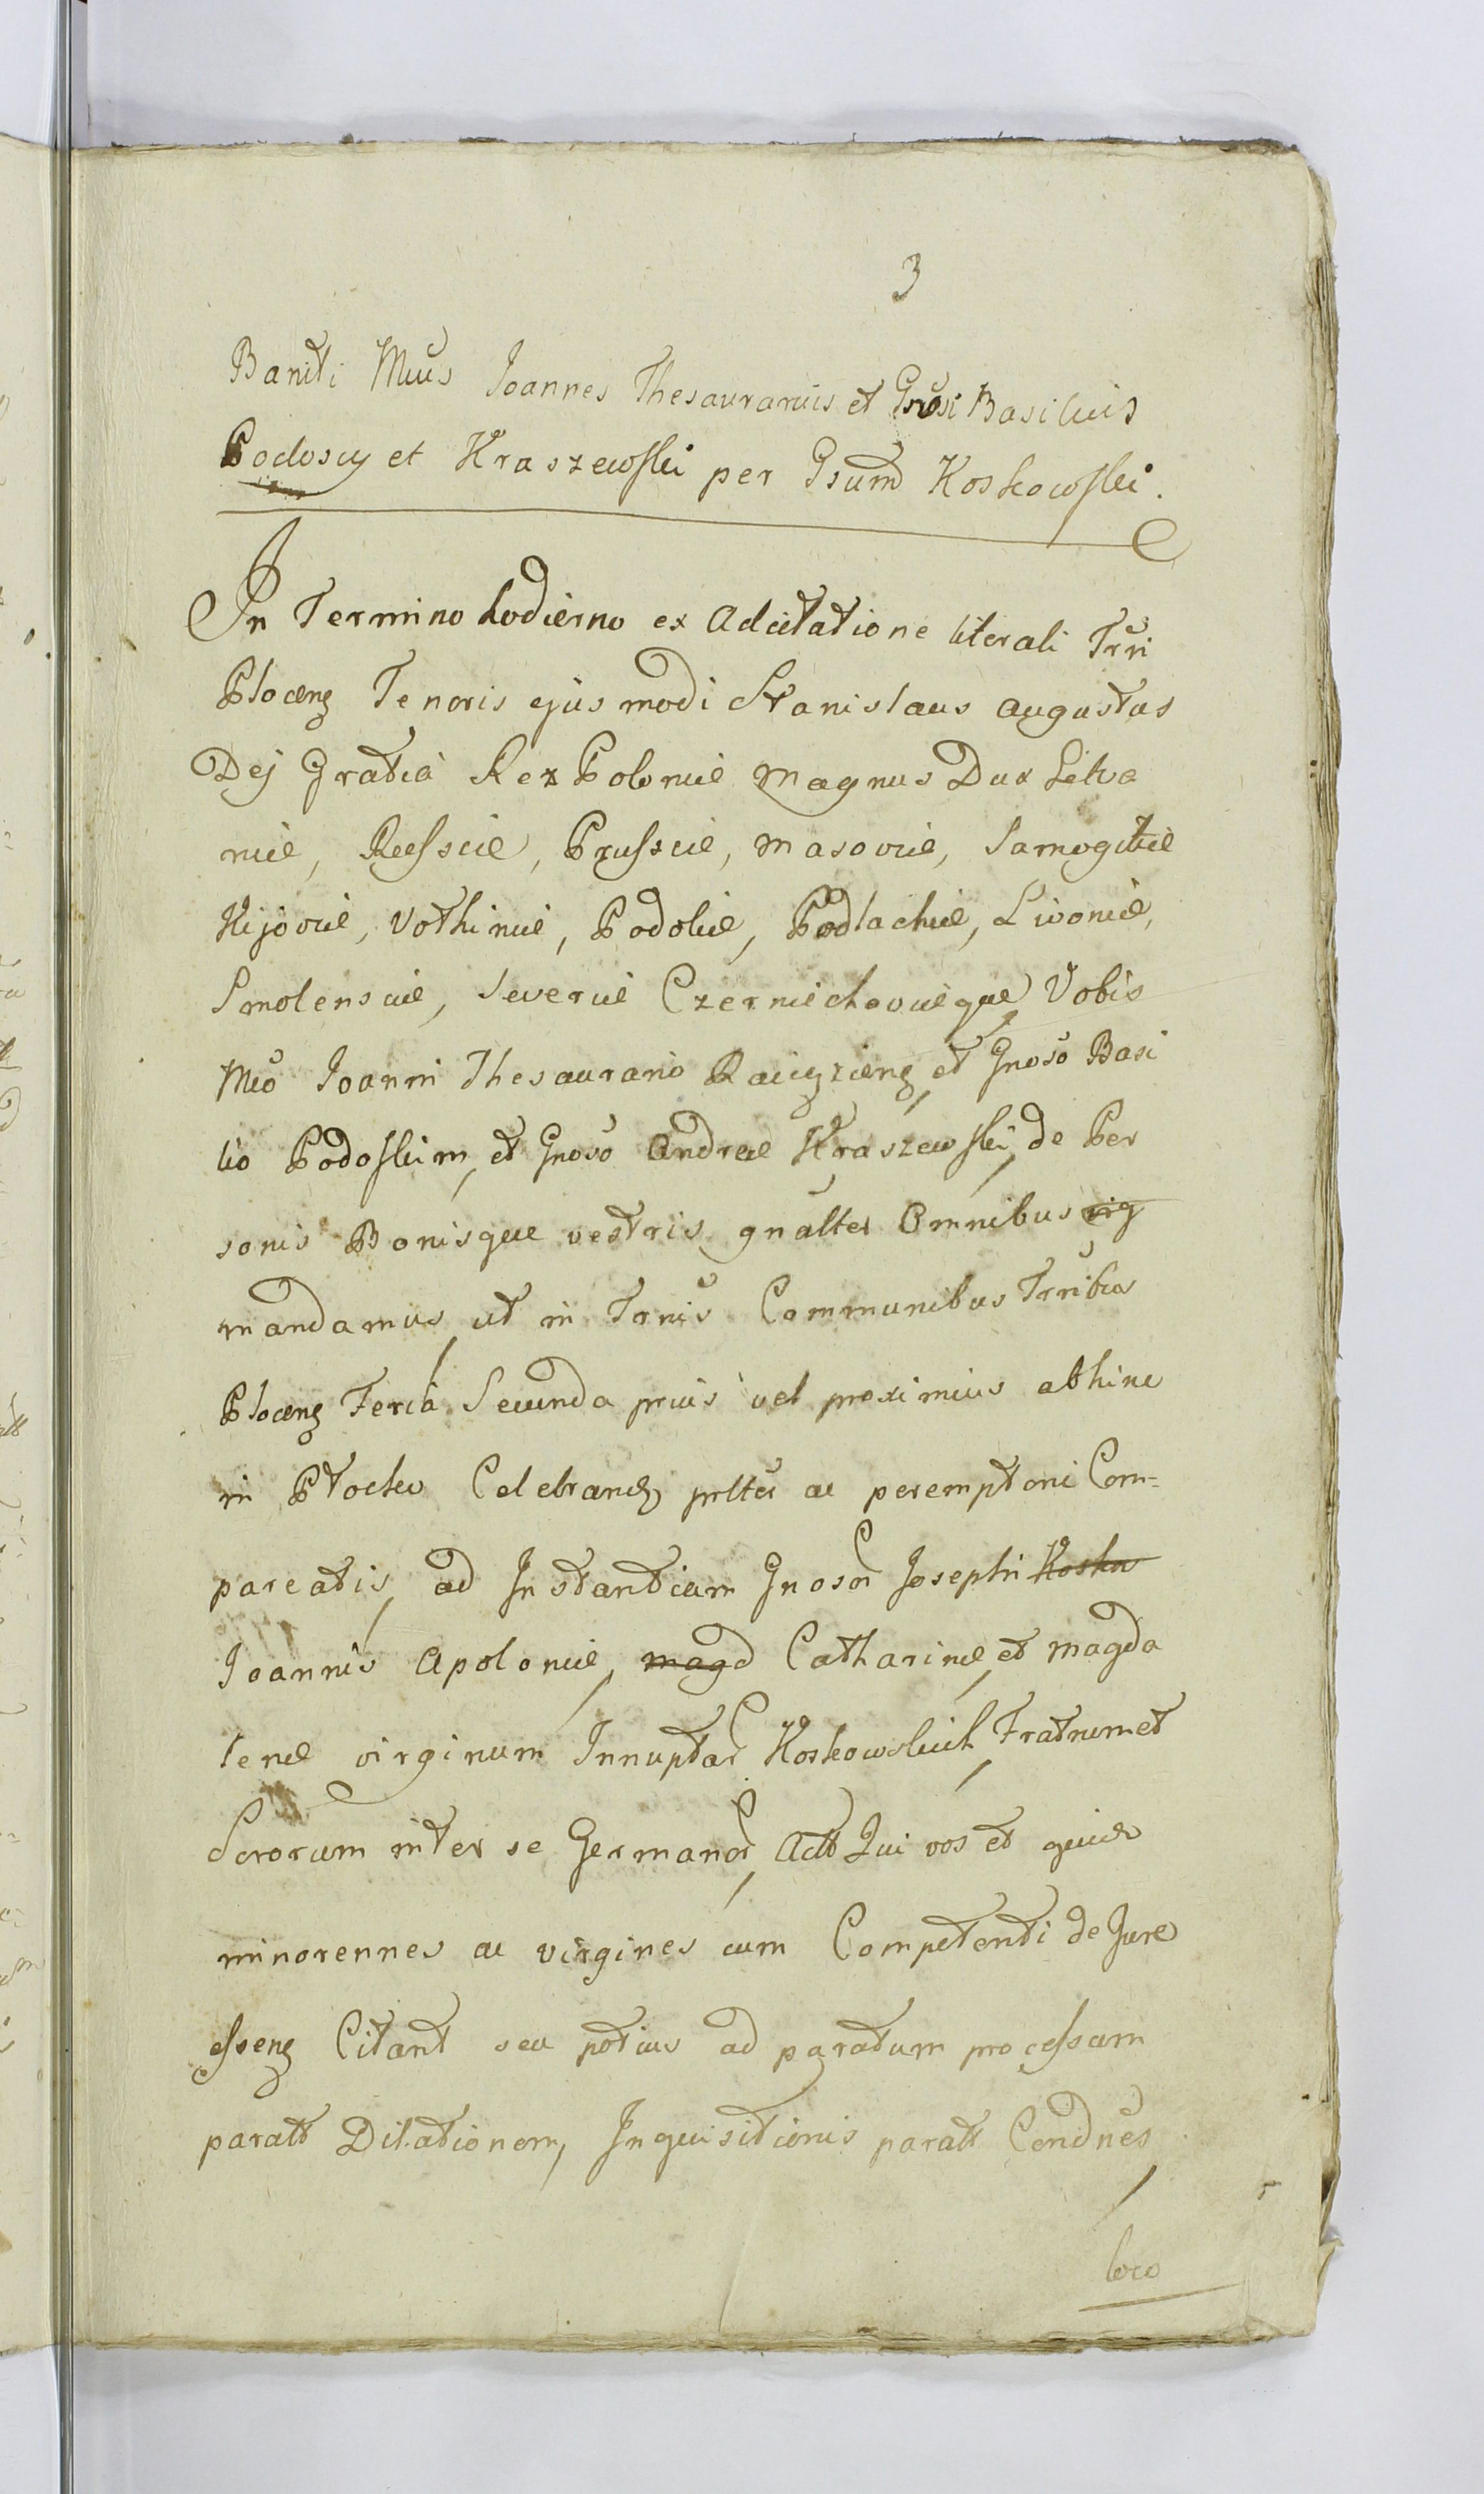 3
Baniti Mcus Joannes Thesaurarius et Gnosi Basilius
Podoscy et Kraszewski per Gsum Koskowski.
In Termino hodierno ex Adcitatione literali Trri
Plocens Tenoris ejusmodi Stanislaus Augustus
Dej Gratia Rex Poloniæ Magnus Dux Litva
niæ, Russiæ, Prussiæ, Masoviæ, Samogitiæ
Kijoviæ, Volhiniæ, Podoliæ, Podlachiæ, Livoniæ,
Smolensciæ, Severiæ Czerniechoviæque Vobis
Mco Joanni Thesaurario Raciąziens, et Gnoso Basi
lio Podoskim, et Gnoso Andreæ Kraszewski, de Per
sonis Bonisque vestris gnalter Omnibus
mandamus, ut in Trnis Communibus Trribus
Plocens Feria Secunda prius vel proximius abhinc
in Płocko Celebrand prltter ac peremptorie Com=
pareatis, ad Instantiam Gnosor Josephi Kosko
Joannis Apoloniæ, magd Catharinæ, et Magda
lenæ virginum Innuptar Koskowskich, Fratrum et
Sororum inter se Germanor, Actt Qui vos et quid
minorennes ac virgines cum Competenti de Jure
essens Citant seu potius ad paratum processum
paratt Dilationem, Inquisitionis paratt Condnes,
loco